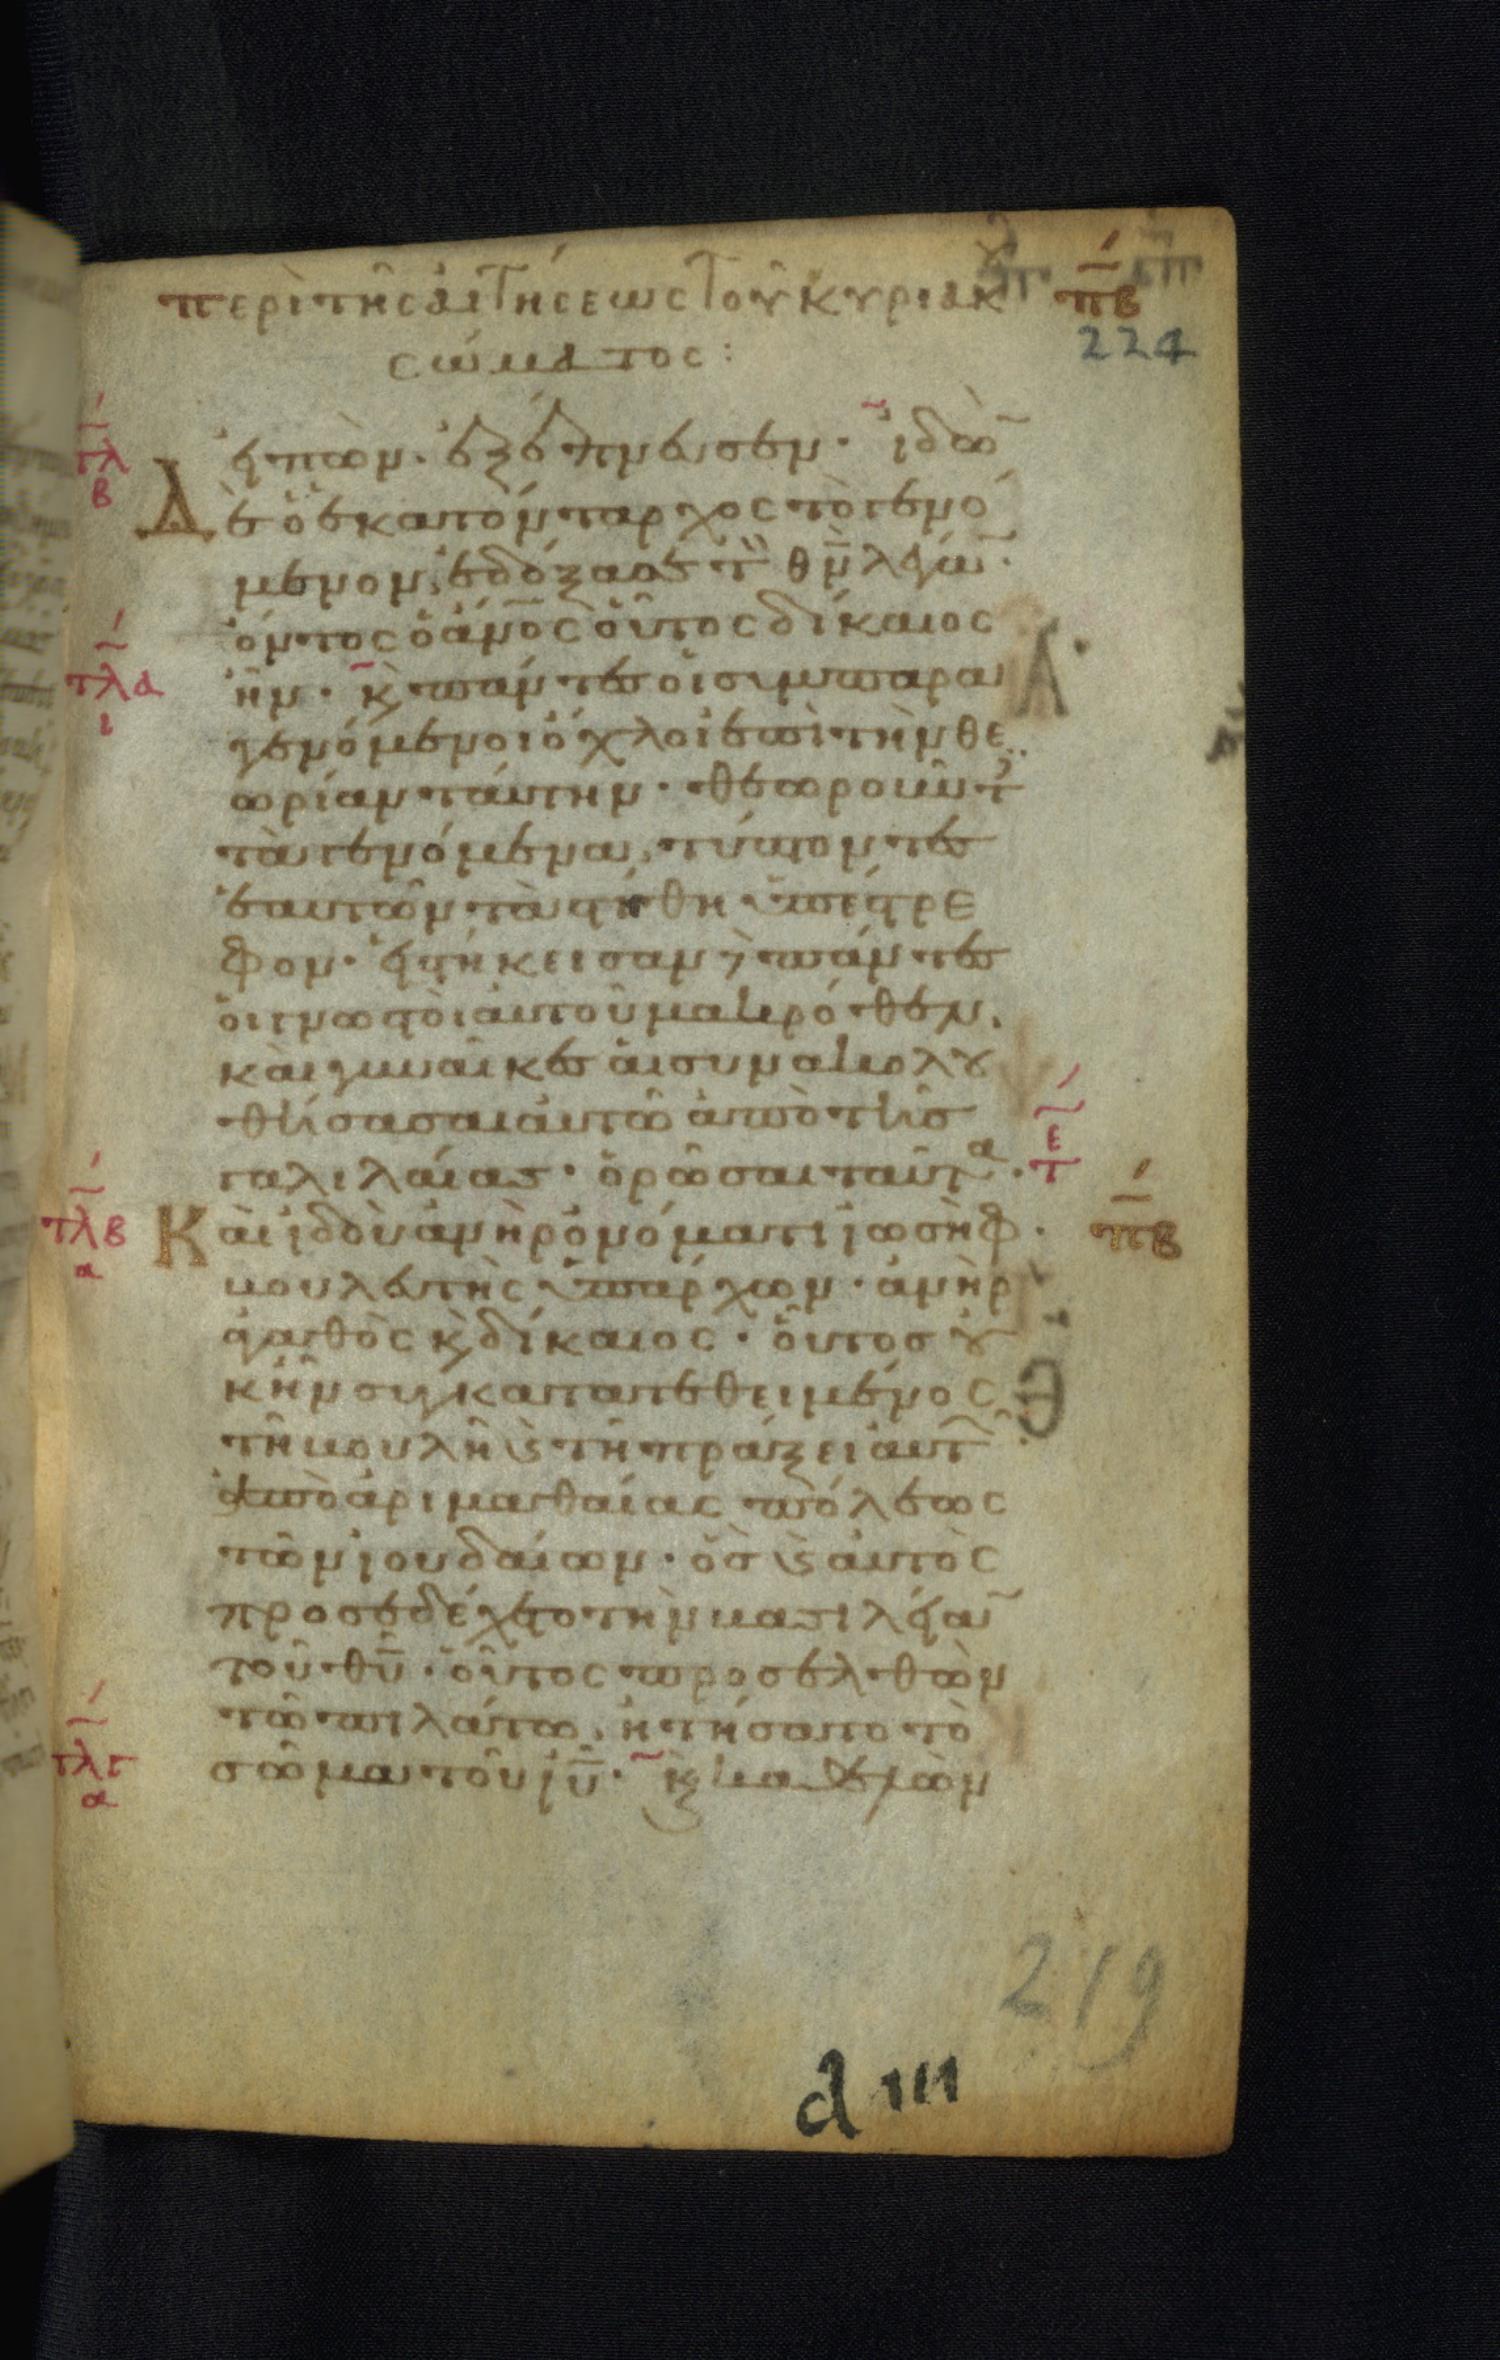 περὶ τῆς αἰτήσεως τοῦ κυριακ
ου
πβ
224
σώματος:
τλ
β
εἰπὼν· ἐξέπνευσεν· ἰδὼ
Δ ὲ ὁ ἑκατόνταρχος τὸ γενό
μενον, ἐδόξασε τὸν θν λέγω
ὄντος ὁ ἄνος οὗτος δίκαιος
τλα
ι
ἦν· κὶ πάντες οἱ συμπαρα
γενόμενοι ὄχλοι ἐπὶ τὴν θε
ωρίαν ταύτην· θεωροῦντ
τὰ γενόμενα, τύπτοντες
ἑαυτῶν τὰ στήθη ὑπέστρε
φον· εἱστήκεισαν δὲ πάντες
οἱ γνωστοὶ αὐτοῦ μακρόθεν,
καὶ γυναῖκες αἱ συνακολου
θήσασαι αὐτῶ ἀπὸ τῆς
γαλιλαίας· ὁρῶσαι ταῦτα·
ε
τ
τλβ
α
Καὶ ἰδοὺ ἀνὴρ ὀνόματι ἰωσὴφ·
πβ
βουλευτὴς ὑπάρχων· ἀνὴρ
ἀγαθὸς κὶ δίκαιος· οὗτος οὐ
κ ἦν συγκατατεθειμένος
τῆ βουλῆ κὶ τῆ πράξει αὐτ
ἀπὸ ἀριμαθαίας πόλεως
τῶν ἰουδαίων· ὃς κὶ αὐτὸς
προσεδέχετο τὴν βασιλεία
τοῦ θυ· οὗτος προσελθὼν
τῶ πιλάτω, ἠτήσατο τὸ
τλγ
α
σῶμα τοῦ ιυ· κὶ καθελὼν
219
d III